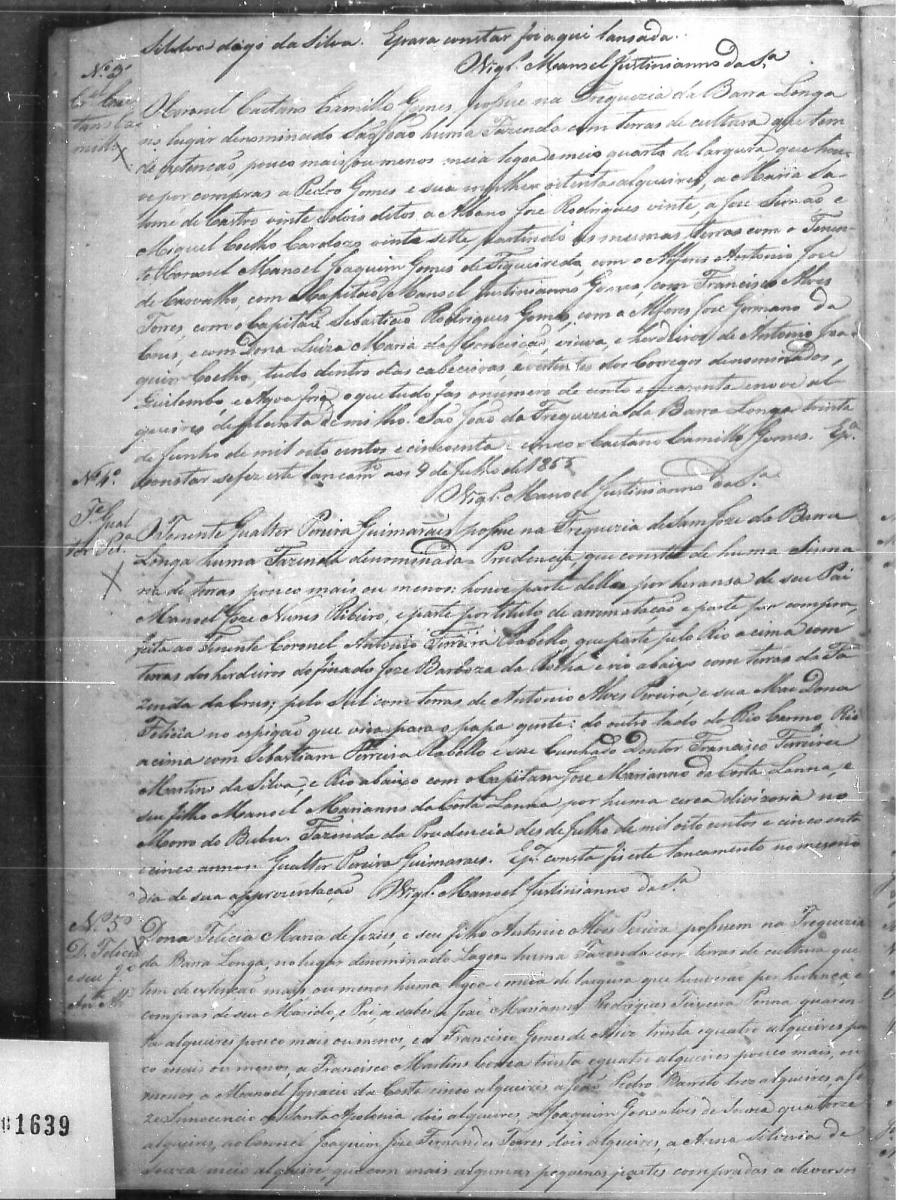 da Silva. E para constar foi aqui lansada.
Vigr.º Manoel Justinianno da S.ª
N.º 3º
O Coronel Caetano Camillo Gomes, possue na Freguezia da Barra Longa
no lugar denominado São João huma Fazenda com terras de cultura que tem
de extencão pouco mais ou menos meia legoa e meio quarto de largura que hou-
ve por compras a Pedro Gomes e sua mulher oitenta alqueires, a Maria Sa-
lome de Castro vinte e dois ditos a Albano Joze Rodrigues vinte, a Joze Serrão e
Miguel Coelho Cardozo vinte sette, partindo as mesmas terras com o Tenen-
te Coronel Manoel Joaquim Gomes de Figueiredo, com o Alferes Antonio Joze
de Carvalho, com o Capitão Manoel Justinianno com Francisco Alves
Torres, com o Capitão Sebastião Rodrigues Gomes, com o Alferes Joze Germano da
Crus, e com Dona Luiza Maria da Conceição, viuva, e herdeiros de Antonio Joa-
quim Coelho, tudo dentro das cabeceiras, e vertentes dos Corregos denominados,
e Agoa fria o que tudo fas o numero de cento e quarenta e nove al-
queires de planta de milho. São João da Freguezia da Barra Longa trinta
de Junho de mil oito centos e cincoenta e cinco Caetano Camillo Gomes. E p.ª
constar se fez este lancam.to aos 9 de Julho de 1855
Vigr.º Manoel Justinianno da S.ª
N.º 4º
O Tenente Gualter Pereira Guimarães possue na Freguezia de Sam Joze da Barra
Longa huma Fazenda denominada Prudencia que consta de huma
de terras pouco mais ou menos: houve parte dellas por heransa de seu Pai
Manoel Joze Nunes Ribeiro, e parte por titulo de arrematacão e parte por compra,
feita ao Tenente Coronel Antonio Ferreira Rabello, que parte pelo Rio acima com
terras dos herdeiros do finado Joze Barboza da e rio abaixo com terras da Fa-
zenda da Crus; pelo Sul com terras de Antonio Alves Pereira e sua Mãe Dona
Felicia no espigão que vira para o papa gente: do outro lado do Rio Carmo, Rio
acima com Sebastiam Ferreira Rabello e seu Cunhado Doutor Francisco Ferreira
Martins da Silva, e Rio abaixo com o Capitam Joze Marianno da Costa Lanna, e
seu filho Manoel Marianno da Costa Lanna, por huma cerca divizoria no
Morro do Bubu. Fazenda da Prudencia des de Julho de mil oito centos e cincoenta
e cinco annos. Gualter Pereira Guimaraes. E p.ª constar fis este lancamento no mesmo
dia de sua apprezentação Vigr.º Manoel Justinianno da S.ª
N.º 5º
D. Felicia
e seu f.º
Dona Felicia Maria de Jezus, e seu filho Antonio Alves Pereira possuem na Freguezia
da Barra Longa, no lugar denominado Lages huma Fazenda com terras de cultura que
tem de extencão mais ou menos huma legoa e meia de largura que houverão por herança, e
compras de seu Marido, e Pai, a saber, a João Marianno Rodrigues Teixeira Penna quaren-
ta alqueires pouco mais ou menos, e a Francisco Gomes de trinta e quatro alqueires pou-
co mais ou menos, a Francisco Martins trinta e quatro alqueires pouco mais, ou
menos a Manoel Ignacio da Costa cinco alqueires a João Pedro Barreto tres alqueires a Jo-
ze Innocencio de Santa Apolonia dois alqueires, a Joaquim Gonsalves de Souza quatorze
alqueires, ao Coronel Joaquim Joze Fernandes Torres dois alqueires, a Anna Silveria de
Souza meio alqueire que com mais algumas pequenas partes compradas a diversos
1639